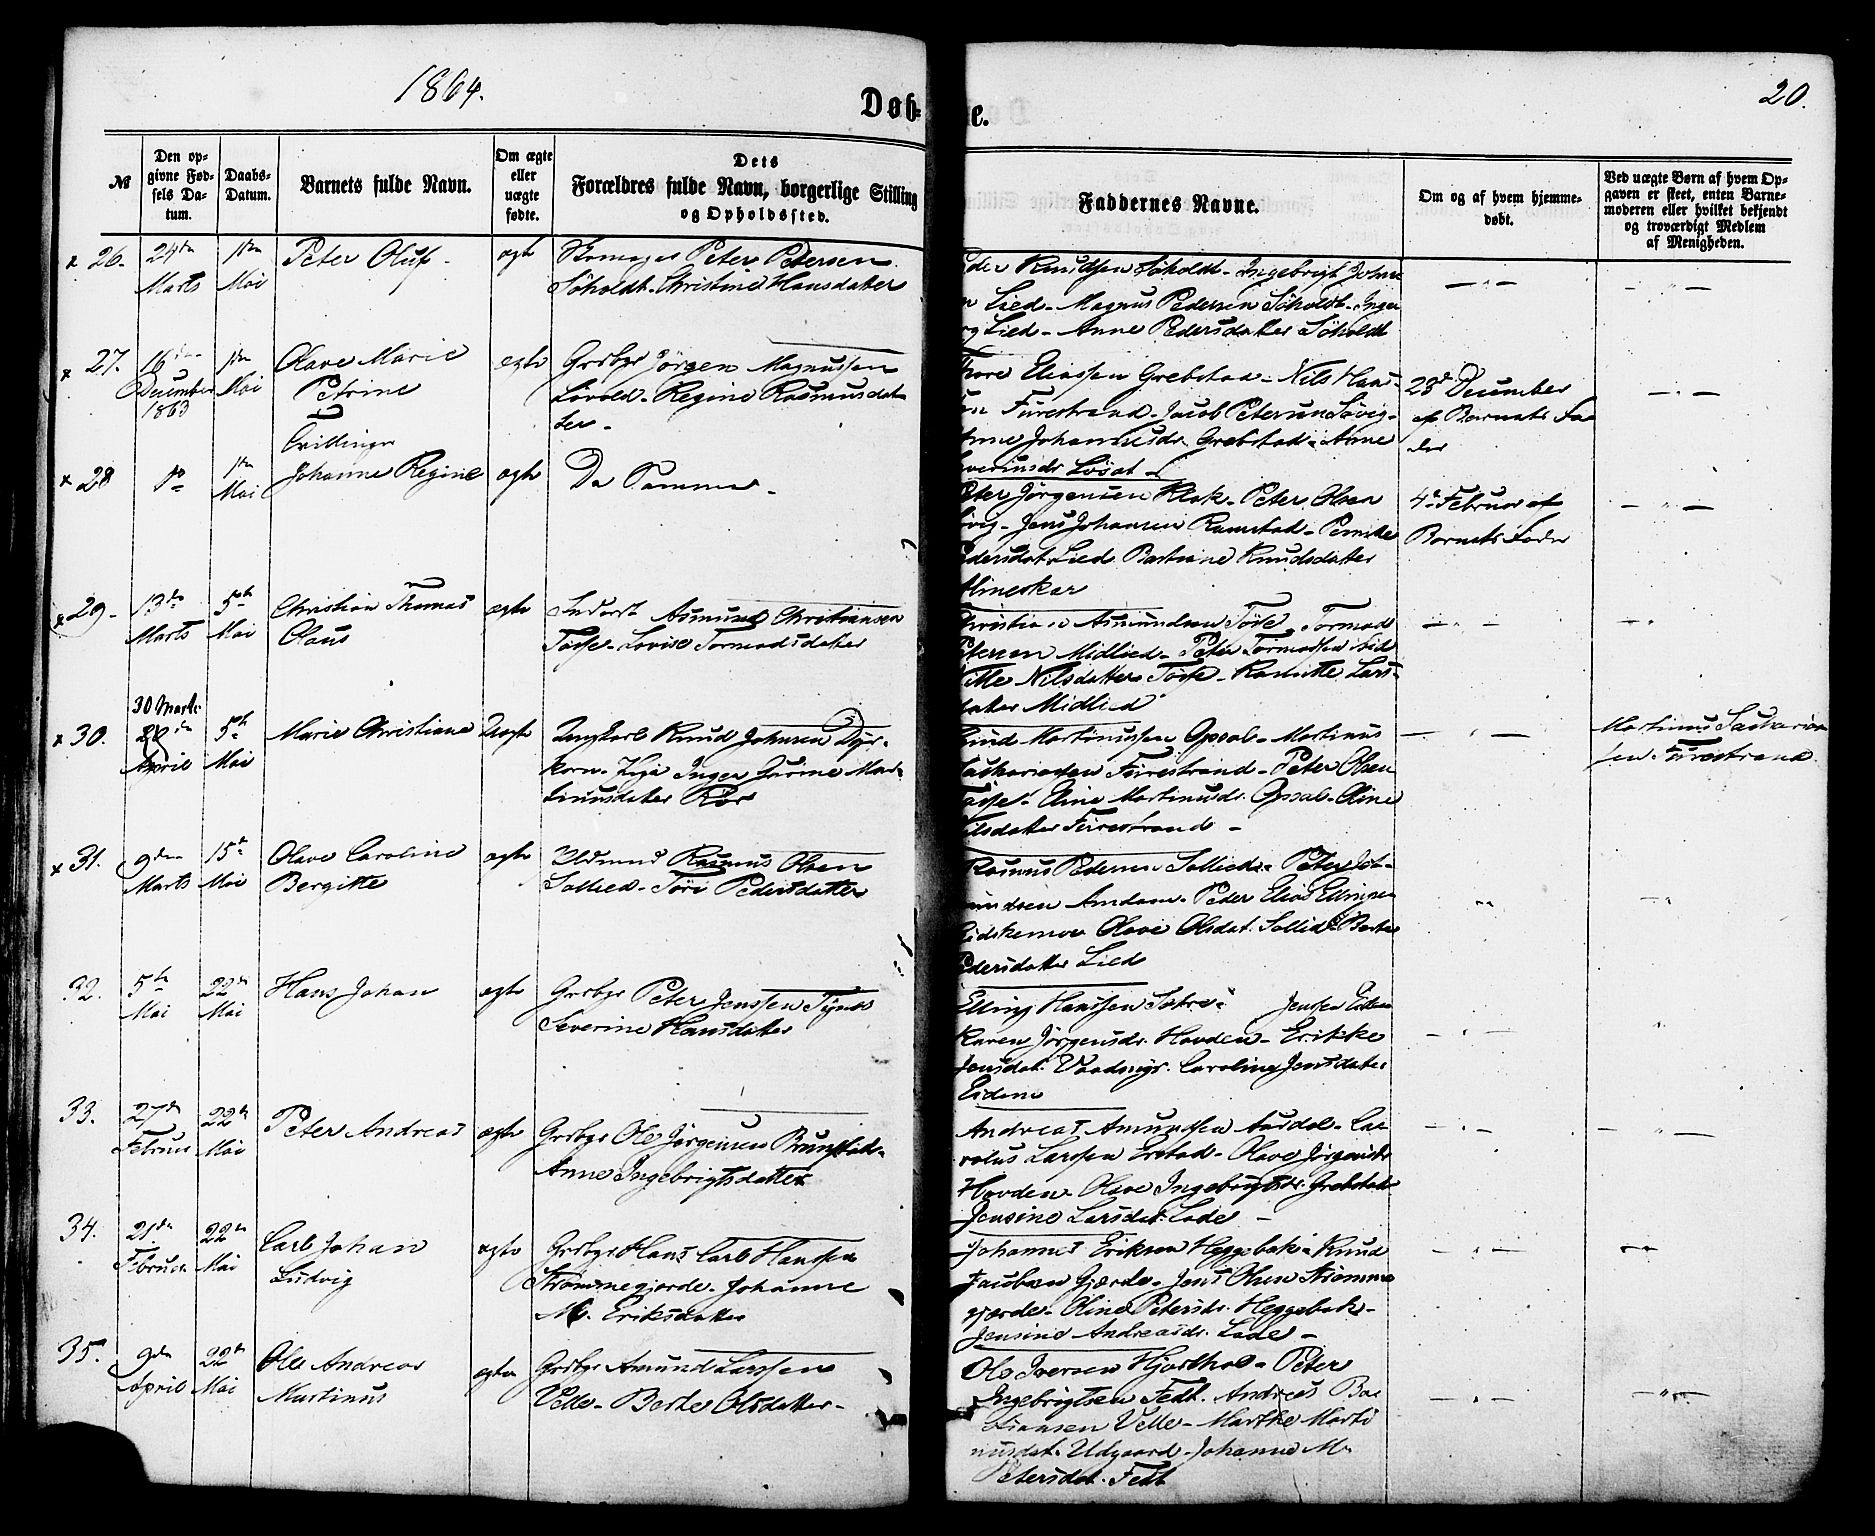 1864.
Døb-
e.
20.
№
Den op-
givne Fød-
sels Da-
tum.
Daabs-
Datum.
Barnets fulde Navn.
Om ægte
eller
uægte
fødte.
Dets
Forældres fulde Navn, borgerlige Stilling
og Opholdssted.
Faddernes Navne.
Om og af hvem hjemme-
døbt.
Ved uægte Børn af hvem Op-
gaven er skeet, enten Barne-
moderen eller hvilket bekjendt
og troværdigt Medlem
af Menigheden.
x 26. 24de Marts
1ste Mai
Peter Oluf
ægte
Peter Petersen
Søholdt. Christine Hansdatter
Knudsen Søholdt. Ingebrigt Johan
Lied. Magnus Pedersen Søholdt. Inge
Lied. Anne Pedersdatter Søholdt
x 27. 16de December 1863
1ste Mai
Olave Marie
Petrine
Tvillinger
ægte
Grdbgr Jørgen Magnussen
Løvold. Regine Rasmusdat
ter.
Thore Eliassen Grebstad. Nils Hans-
en Furestrand. Jacob Petersen Søvig.
Anne Johannesdr. Grebstad. Anne
28de December
af Barnets Fa
der
x 28 do
1ste Mai
Johanne Regine
ægte
De Samme.
Peter Jørgensen Klok. Peter Olsen
vig. Jens Johansen Ramstad.
edersdat. Lied. Bastiane Knudsdatter
4de Februar af
Barnets Fader
x 29. 13de Marts
5te Mai
Christian Thomas
Olaus
ægte
Inderst Asmund Christiansen
Tøsse. Lovise Tormodsdatter
hristian Asmundsen Tøsse. Tormod
etersen Midlied. Peter Tormodsen Lied
Nilsdatter Tøsse. Lars-
datter Midlied
x 30. 30 Marts
April
5te Mai
Marie Christiane
Uægte
Ungkarl Knud Johnsen Dyr-
korn. Pige Inger Jurine Mar-
tinusdatter
Knud Martinussen Opsal. Martinus
Sachariasen Furestrand. Peter Olsen
Tøsse. Eline Martinusdr. Opsal. Oline
Nilsdatter Furestrand
Martinus Sacharia
sen Furestrand
x 31. 9de Marts
15de Mai
Olave Caroline
Bergitte
ægte
Husmand Rasmus Olsen
Sollied. Tøri Pedersdatter
Rasmus Pedersen Sollied. Peter
Amdam. Peder Elias Ellingsen
Olave Olsdat. Sollied. Berte
edersdatter Lied
32. 5te Mai
22de Mai
Hans Johan
ægte
Grdbgr Peter Jenssen Tynes
Severine Hansdatter
Elling Hanssen Sætre. Jenssen Eidem
Karen Jørgensdr. Hovden. Erikke
Jensdat. Vaadmyr. Caroline Jensdatter
Eidem
33. 27de Februar
22de Mai
Peter Andreas
ægte
Grdbgr Ole Jørgensen Brunstad.
Anne Ingebrigtsdatter
Andreas Amundsen Aurdal. Ca
rolus Larssen Erstad. Olave Jørgensdr
Hovden. Olave Ingebrigtsdr. Grebstad
Jensine Larsdat. Lade
34. 21de Februar
22de Mai
Carl Johan
Ludvig
ægte
Grdbgr Hans Carl Hanssen
Strømmegjerde. Johanne
M. Eriksdatter
Johannes Eriksen Heggebak. Knud
Jacobsen Gjærde. Jens Olsen Strømme
gjærde. Oline Petersdr. Heggebak
Jensine Andreasdr. Lade
35. 9de April
22de Mai
Ole Andreas
Martinus
ægte
Grdbgr Amund Larssen
Velle. Berte Olsdatter
Ole Iversen Hjorthol. Peter
Ingebrigtsen Fedt. Andreas Ba
stiansen Velle. Marthe Marti
nusdat. Udgaard. Johanne M.
Petersdat. Fedt